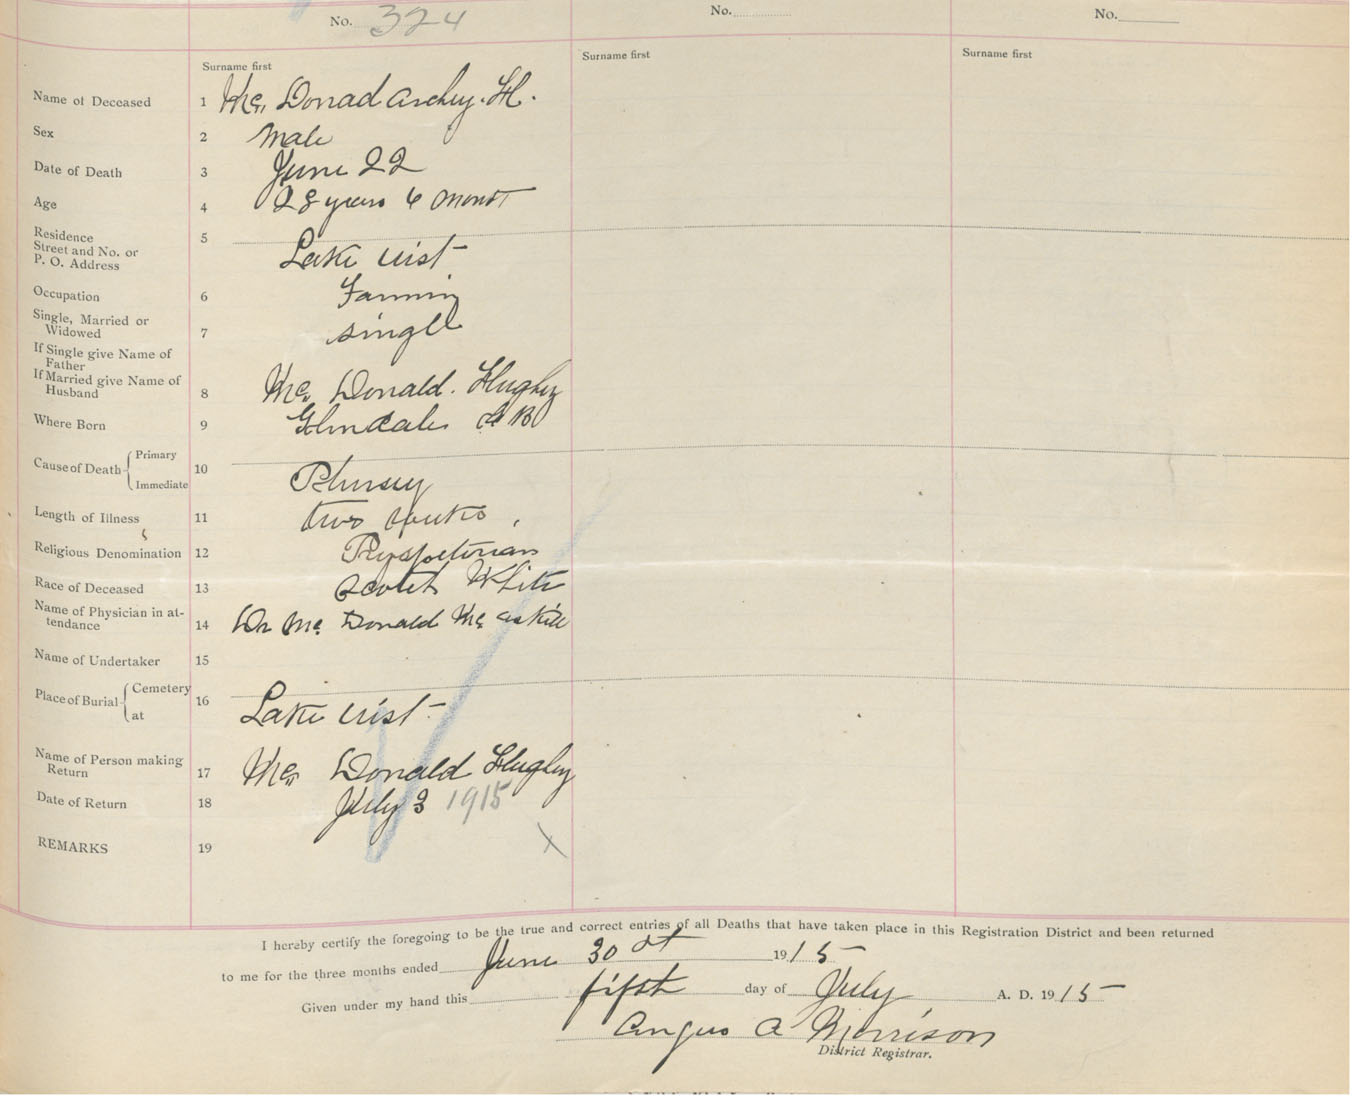 No. 324
No.
No.
Surname first
Surname first
Surname first
Name of Deceased 1 Mc, Donad Archey. H.
Sex 2 Male
Date of Death 3 June 22
Age 4 28 years 6 Monst
Residence 5
Street and No. or
P. O. Address Lake uist
Occupation 6 Farming
Single, Married or
Widowed 7 single
If Single give Name of
Father
If Married give Name of
Husband 8 Mc, Donald. Hughey
Where Born 9 Glendale C B
Cause of Death Primary 10
Immediate Plursey
Length of Illness 11 two
Religious Denomination 12
Race of Deceased 13 Scotch White
Name of Physician in at-
tendance 14 Dr Mc, Donald Mc askill
Name of Undertaker 15
Place of Burial Cemetery 16
at Lake uist
Name of Person making
Return 17 Mc, Donald Hughey
Date of Return 18 July 3 1915
REMARKS 19
I hereby certify the foregoing to be the true and correct entries of all Deaths that have taken place in this Registration District and been returned
to me for the three months ended June 30 1915
Given under my hand this fifth day of July A. D. 1915
Angus A Morrison
District Registrar.